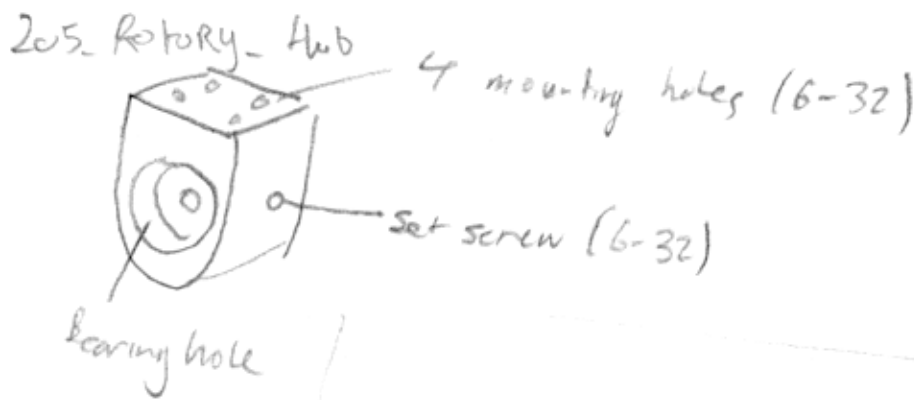 205_ Rotory_ Hub
4 mounting holes (6-32)
set screw (6-32)
Bearing hole